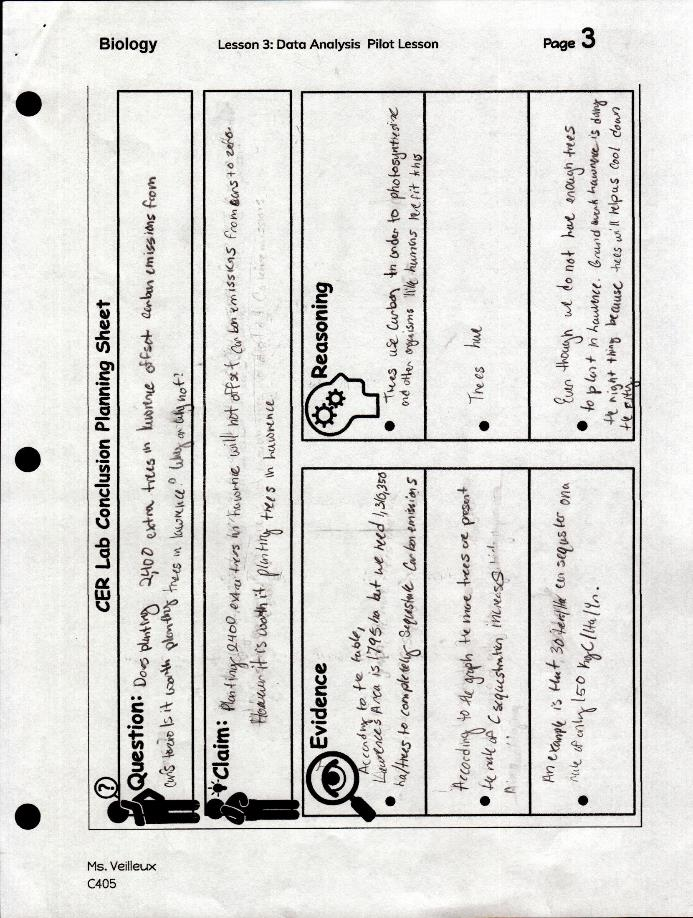 Biology
Lesson 3: Data Analysis Pilot Lesson
Page 3
CER Lab Conclusion Planning Sheet
?
Question: Does planting 2,400 extra trees in lawrence offset carbon emissions from
cars to zero? Is it worth planting trees in lawrence? Why or why not?
Claim: Planting 2400 extra trees in lawrence will not offset carbon emissions from cars to zero.
However it is worth it planting trees in lawrence
Evidence
According to the table,
Lawrence's Area is 1,795 ha but we need 1,316,350
ha/trees to completely sequestrate carbon emissions
According to the graph the more trees are present
the rate of C sequestration increases
An example is that 30 can sequster on a
rate of only 150 KgC/Ha/Yr.
Reasoning
Trees use carbon in order to photosynthesize
and other organisms like humans benefit this
Trees have
Even though we do not have enough trees
to plant in lawrence. Ground work lawrence is doing
the right thing because trees will help us cool down
the
Ms. Veilleux
C405